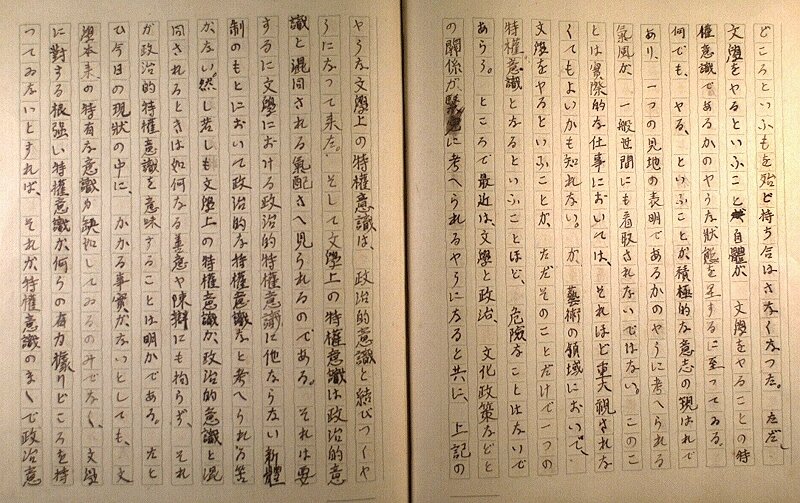 どころといふもを殆ど持ち合はさなくなつた。ただ、
文學をやるといふこと自體が、文學をやることの特
權意識であるかのやうな狀態を呈するに至つてゐる。
何でも、やる、といふことが積極的な意志の現はれで
あり、一つの見地の表明であるかのやうに考へられる
氣風が、一般世間にも看取されないではない。このこ
とは實際的な仕事においては、それほど重大視されな
くてもよいかも知れない。が、藝術の領域において、
文學をやるといふことが、ただそのことだけで一つの
特權意識となるといふことほど、危險なことはないで
あらう。ところで最近は、文學と政治、文化政策などと
の關係が緊密に考へられるやうになると共に、上記の
やうな文學上の特權意識は、政治的意識と結びつくや
うになつて來た。そして文學上の特權意識は政治的意
識と混同される氣配さへ見られるのである。それは要
するに文學における政治的特權意識に他ならない新體
制のもとにおいて政治的な特權意識なと考へられる筈
がない然し若しも文學上の特權意識が政治的意識と混
同されるときは如何なる善意や陳辯にも拘らず、それ
が政治的特權意識を意味することは明かである。たと
ひ今日の現狀の中に、かかる事實がないとしても、文
學本來の特有な意識が缺如してゐるのみでなく、文學
に對する根强い特權意識が何らの有力據りどころを持
つてゐないとすれば、それが特權意識のまゝで政治意